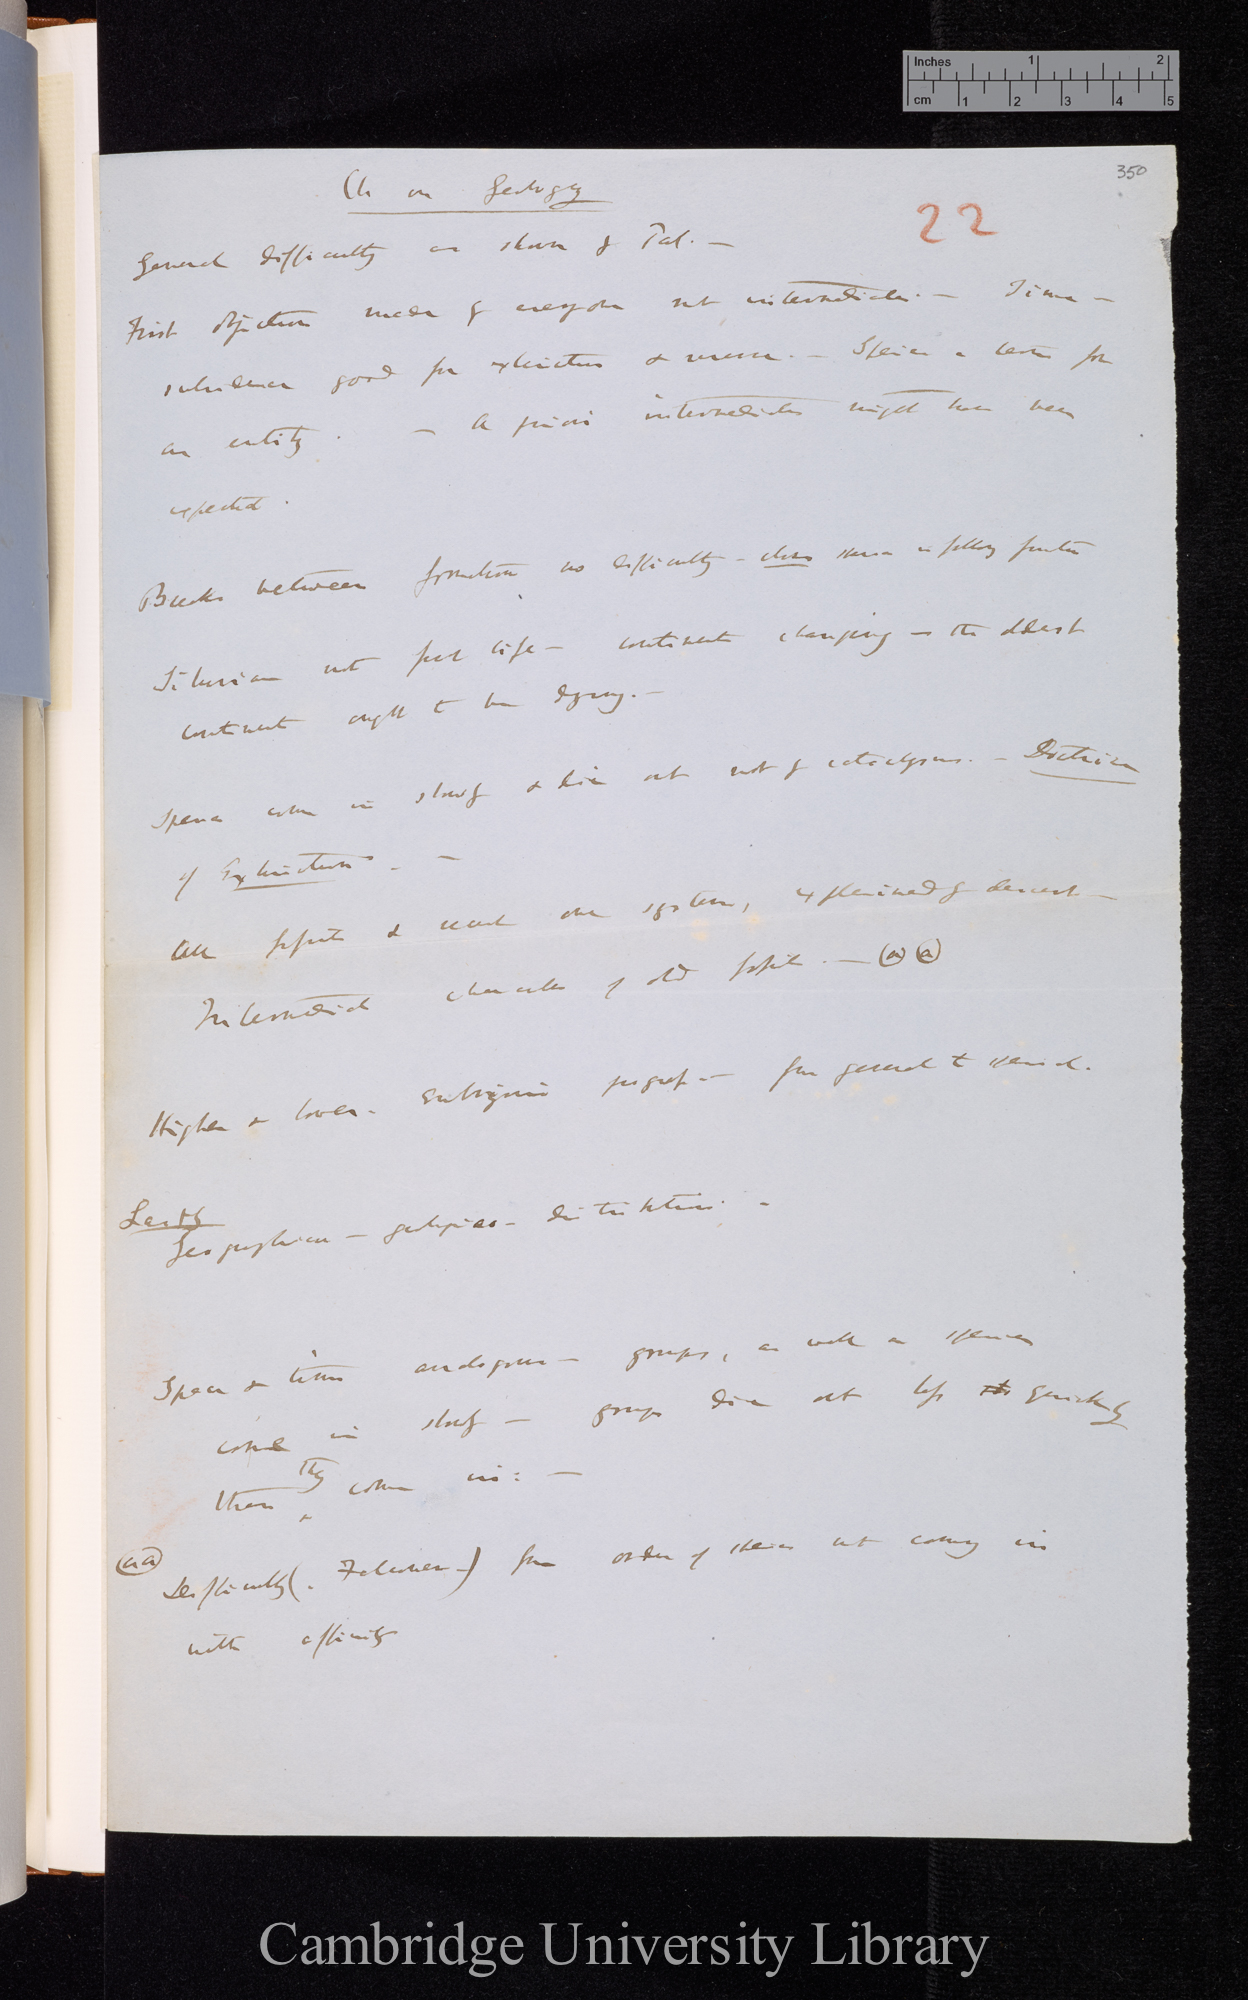 Inches 1 2
cm 1 2 3 4 5
350
22
Ch on Geology
General difficulty as shown by Pal. —
First objection made by everyone not intermediates. — Time —
subsidence good for extinction & — Species a term for
an entity. — A priori intermediates might have been
expected.
Breaks between formations no difficulty — close species in following
Silurian not first life — continents changing — the oldest
continent ought to be —
Species come in slowly & die out not by cataclysms. — Doctrine
of Extinction. —
All fossils & recent one system, explained by descent —
Intermediate character of old fossil. — (a) (a)
Higher & lower. Embryonic progress — from general to special.
Lastly
Geographical — geological — distribution —
Space & time analogous — groups, as well as species
come in slowly — groups die out less quickly
than they come in: —
(aa)
Difficulty (. Falconer —) from order of species not coming in
with affinity
Cambridge University Library